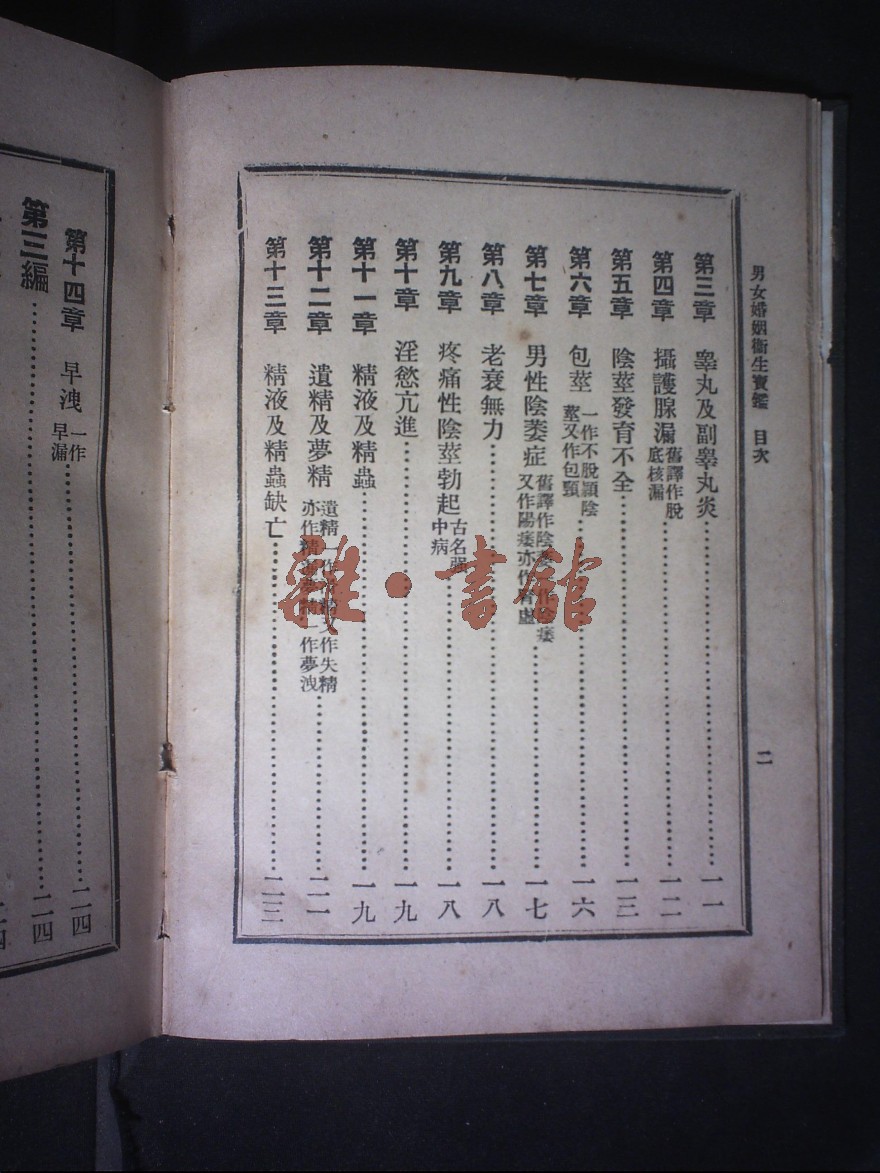 男女婚姻衞生寶鑑 目次 二
第三章 睾丸及副睾丸炎 一一
第四章 攝護腺漏 舊譯作脫底核漏 一二
第五章 陰莖發育不全 一三
第六章 包莖 一作不脫頴陰莖又作包頸 一六
第七章 男性陰萎症 舊譯作陰萎 又作陽痿亦作腎虛 一七
第八章 老衰無力 一八
第九章 疼痛性陰莖勃起 古名強中病 一八
第十章 淫慾亢進 一九
第十一章 精液及精蟲 一九
第十二章 遺精及夢精 遺精一作 精又作失精 亦作精 一作夢洩 二一
第十三章 精液及精蟲缺亡 二三
第十四章 早洩 一作早漏 二四
第三編 二四
二四
雜·書館